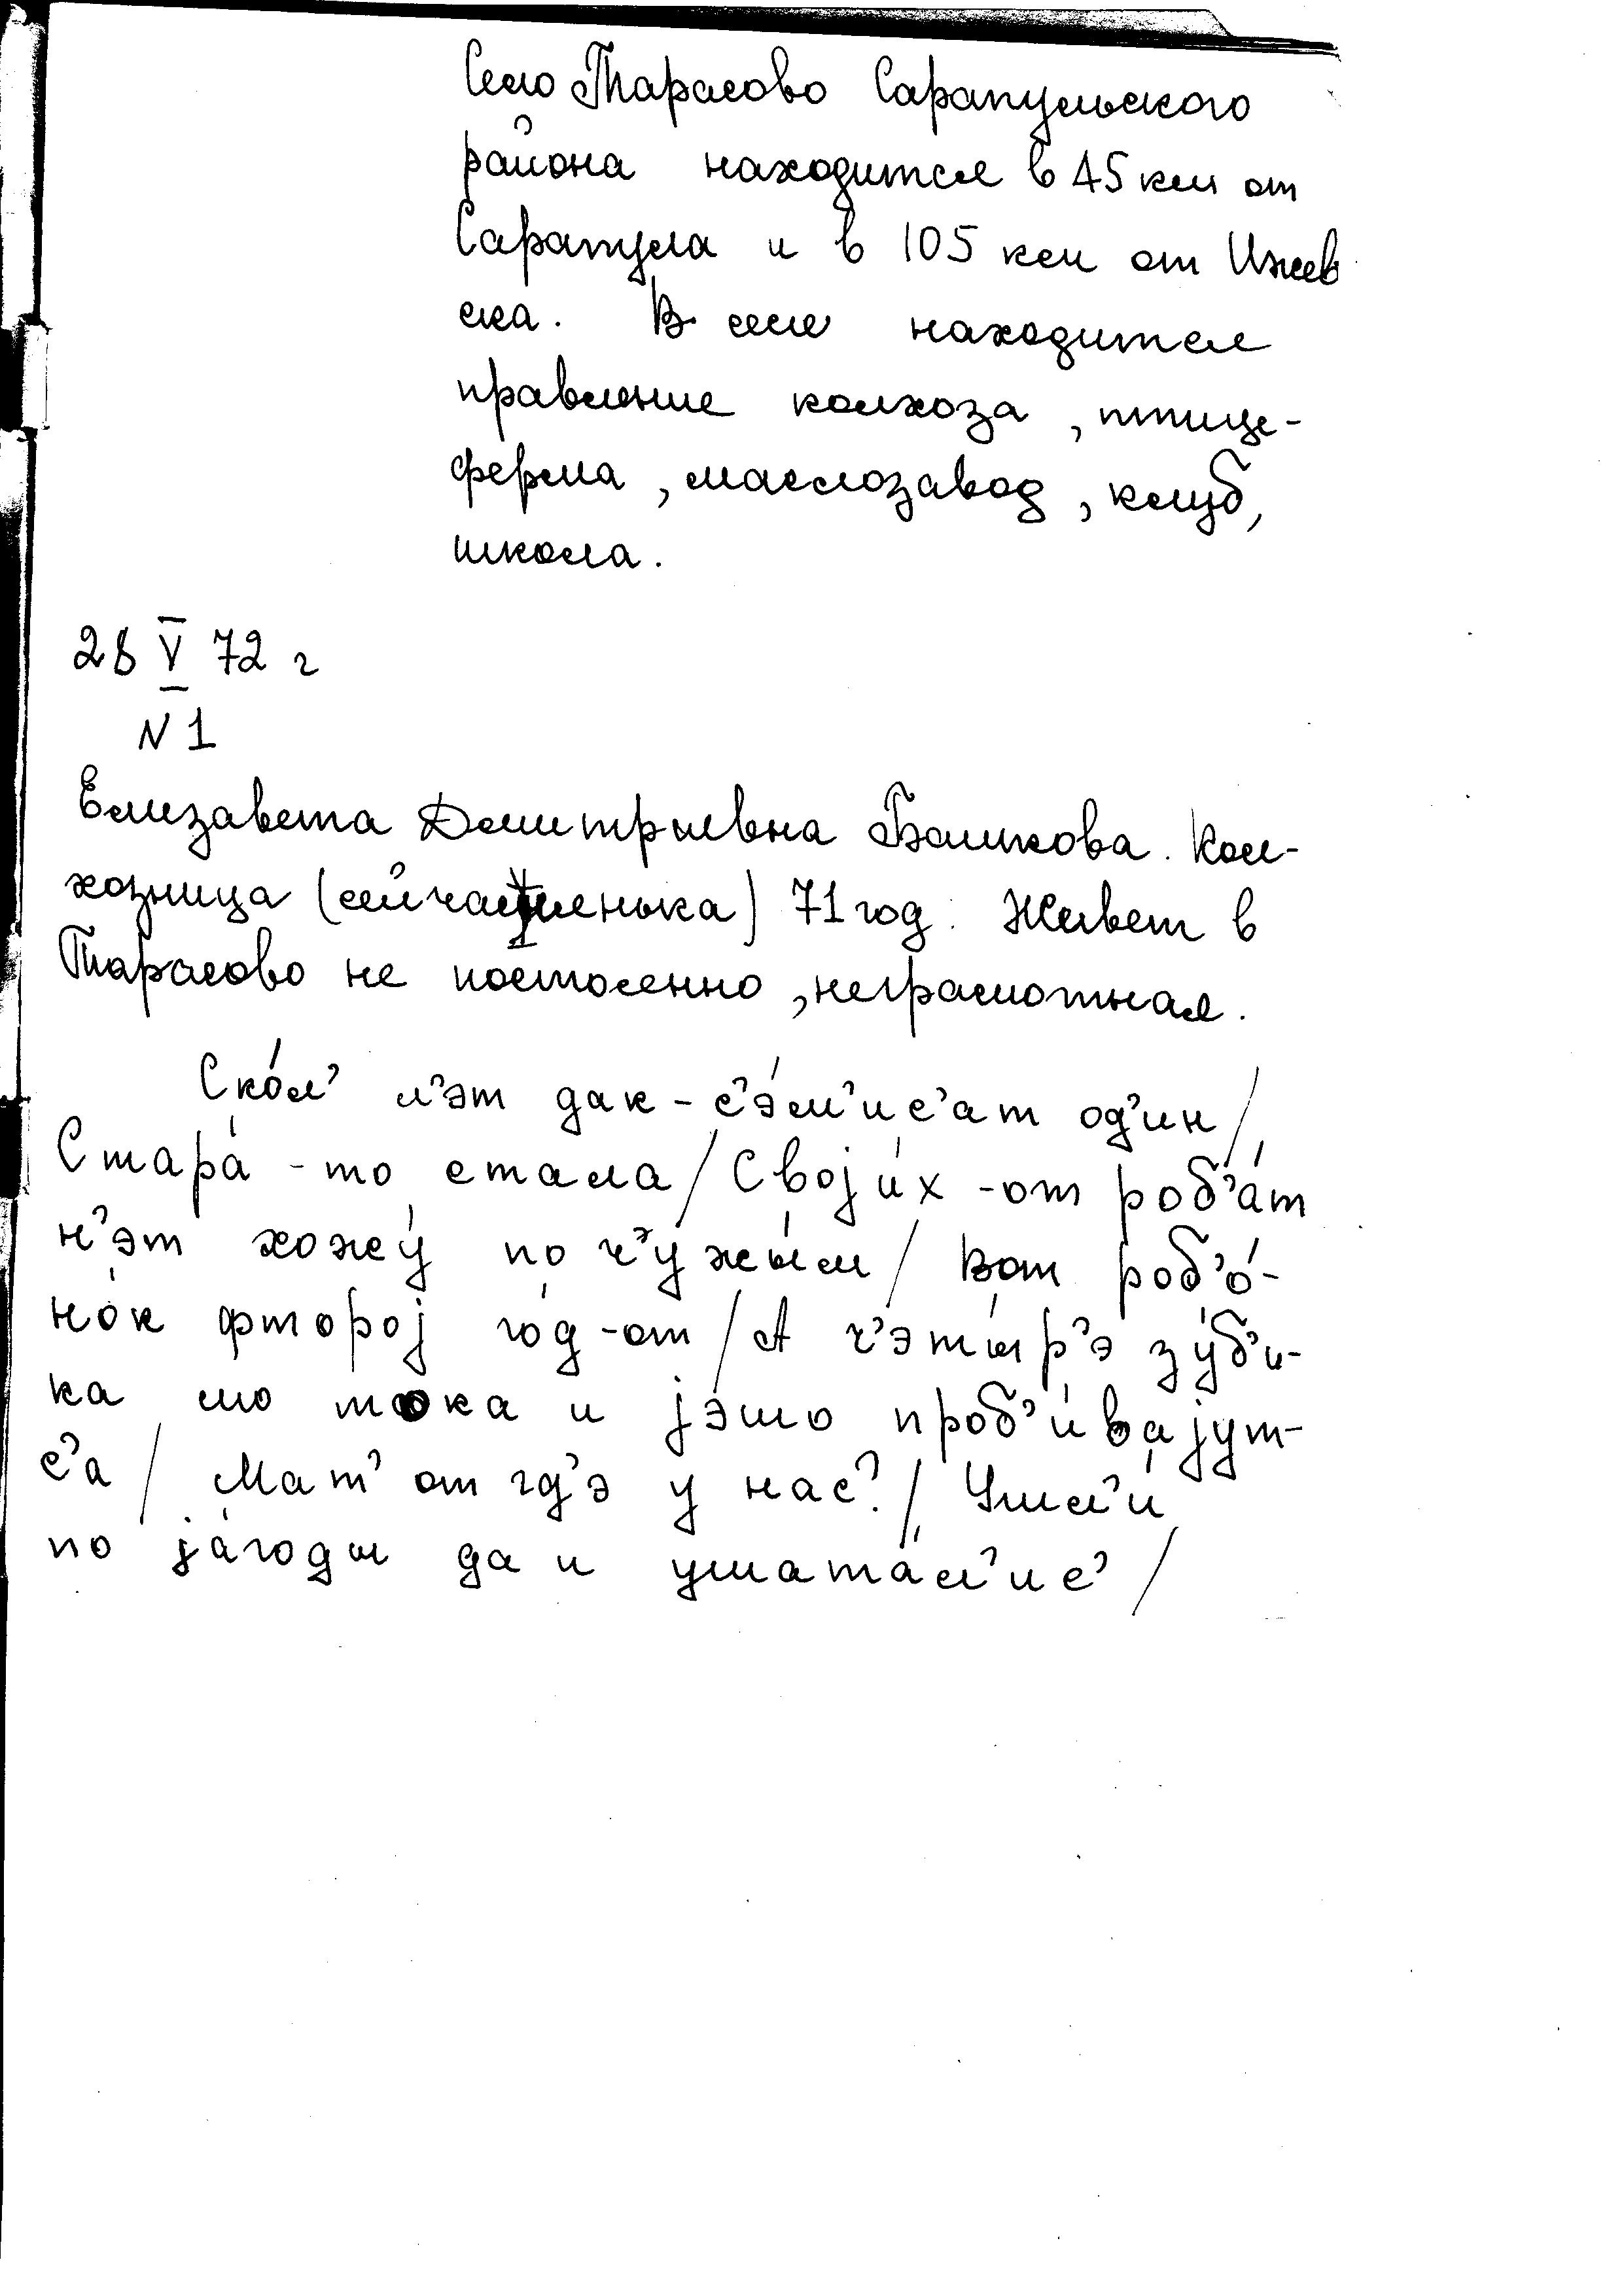 Село Тарасово Сарапульского
района находится в 45 км от
Сарапула и в 105 км от Ижев
ска. В селе находится
правление колхоза, птице-
ферма, маслозавод, клуб,
школа.
28 V 72 г
N 1
Елизавета Дмитриевна Башкова. Кол-
хозница (сейчас нянька) 71 год. Живет в
Тарасово не постоянно, неграмотная.
Ско́л’ л’эт дак - с’э́м’ис’ат од’ин /
Стара́ - то стала / Своjи́х - от роб’а́т
н’эт хожу́ по ч’ужы́м / Вот роб’о́-
нок фтороj го́д - от / А ч’эты́р’э зу́б’и-
ка -то тока и jэшо проб’и́ваjут-
с’а / Мат’ от гд’э у нас? / Ушл’и́
по jа́годы да и ушата́л’ис’ /